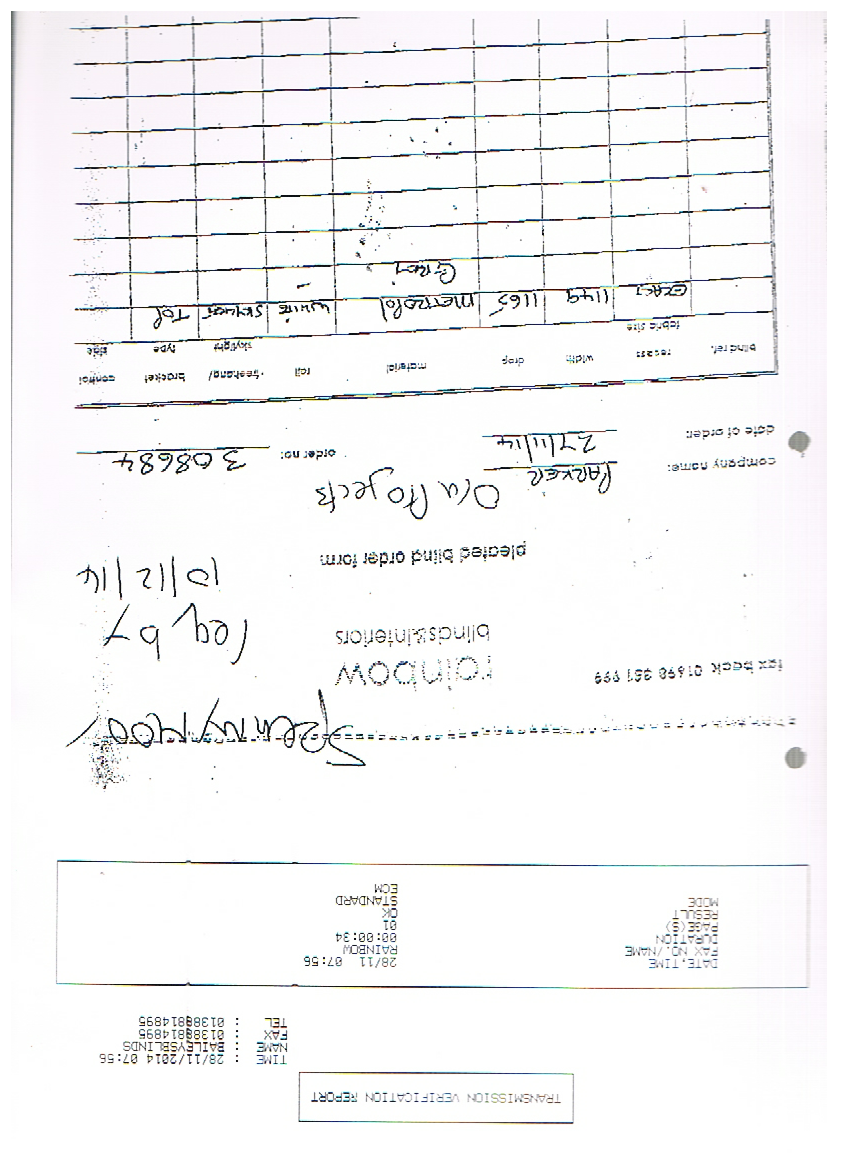 TRANSMISSION VERIFICATION REPORT
TIME : 28/11/2014 07:56
NAME : BAILEYSBLINDS
FAX : 01388814895
TEL : 01388814895
DATE,TIME 28/11 07:56
FAX NO./NAME RAINBOW
DURATION 00:00:34
PAGE(S) 01
RESULT OK
MODE STANDARD
ECM
Spennymoor
fax back 01698 351 999
rainbow
blinds&interiors
req by
10/12/14
pleated blind order form
O/U Projects
company name: PARKER
date of order: 27/11/14 order no: 308684
blind ref. recess: fabric size width drop material rail freehang/ skylight bracket type control side
EXACT 1149 1165 metropol white skylight Tol
Grey